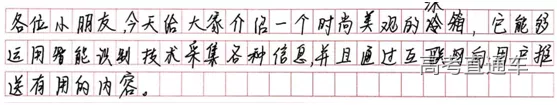 各位小朋友,今天给大家介绍一个时尚美观的冰箱,它能够
运用智能识别技术采集各种信息,并且通过互联网向用户推
送有用的内容。
高考直通车